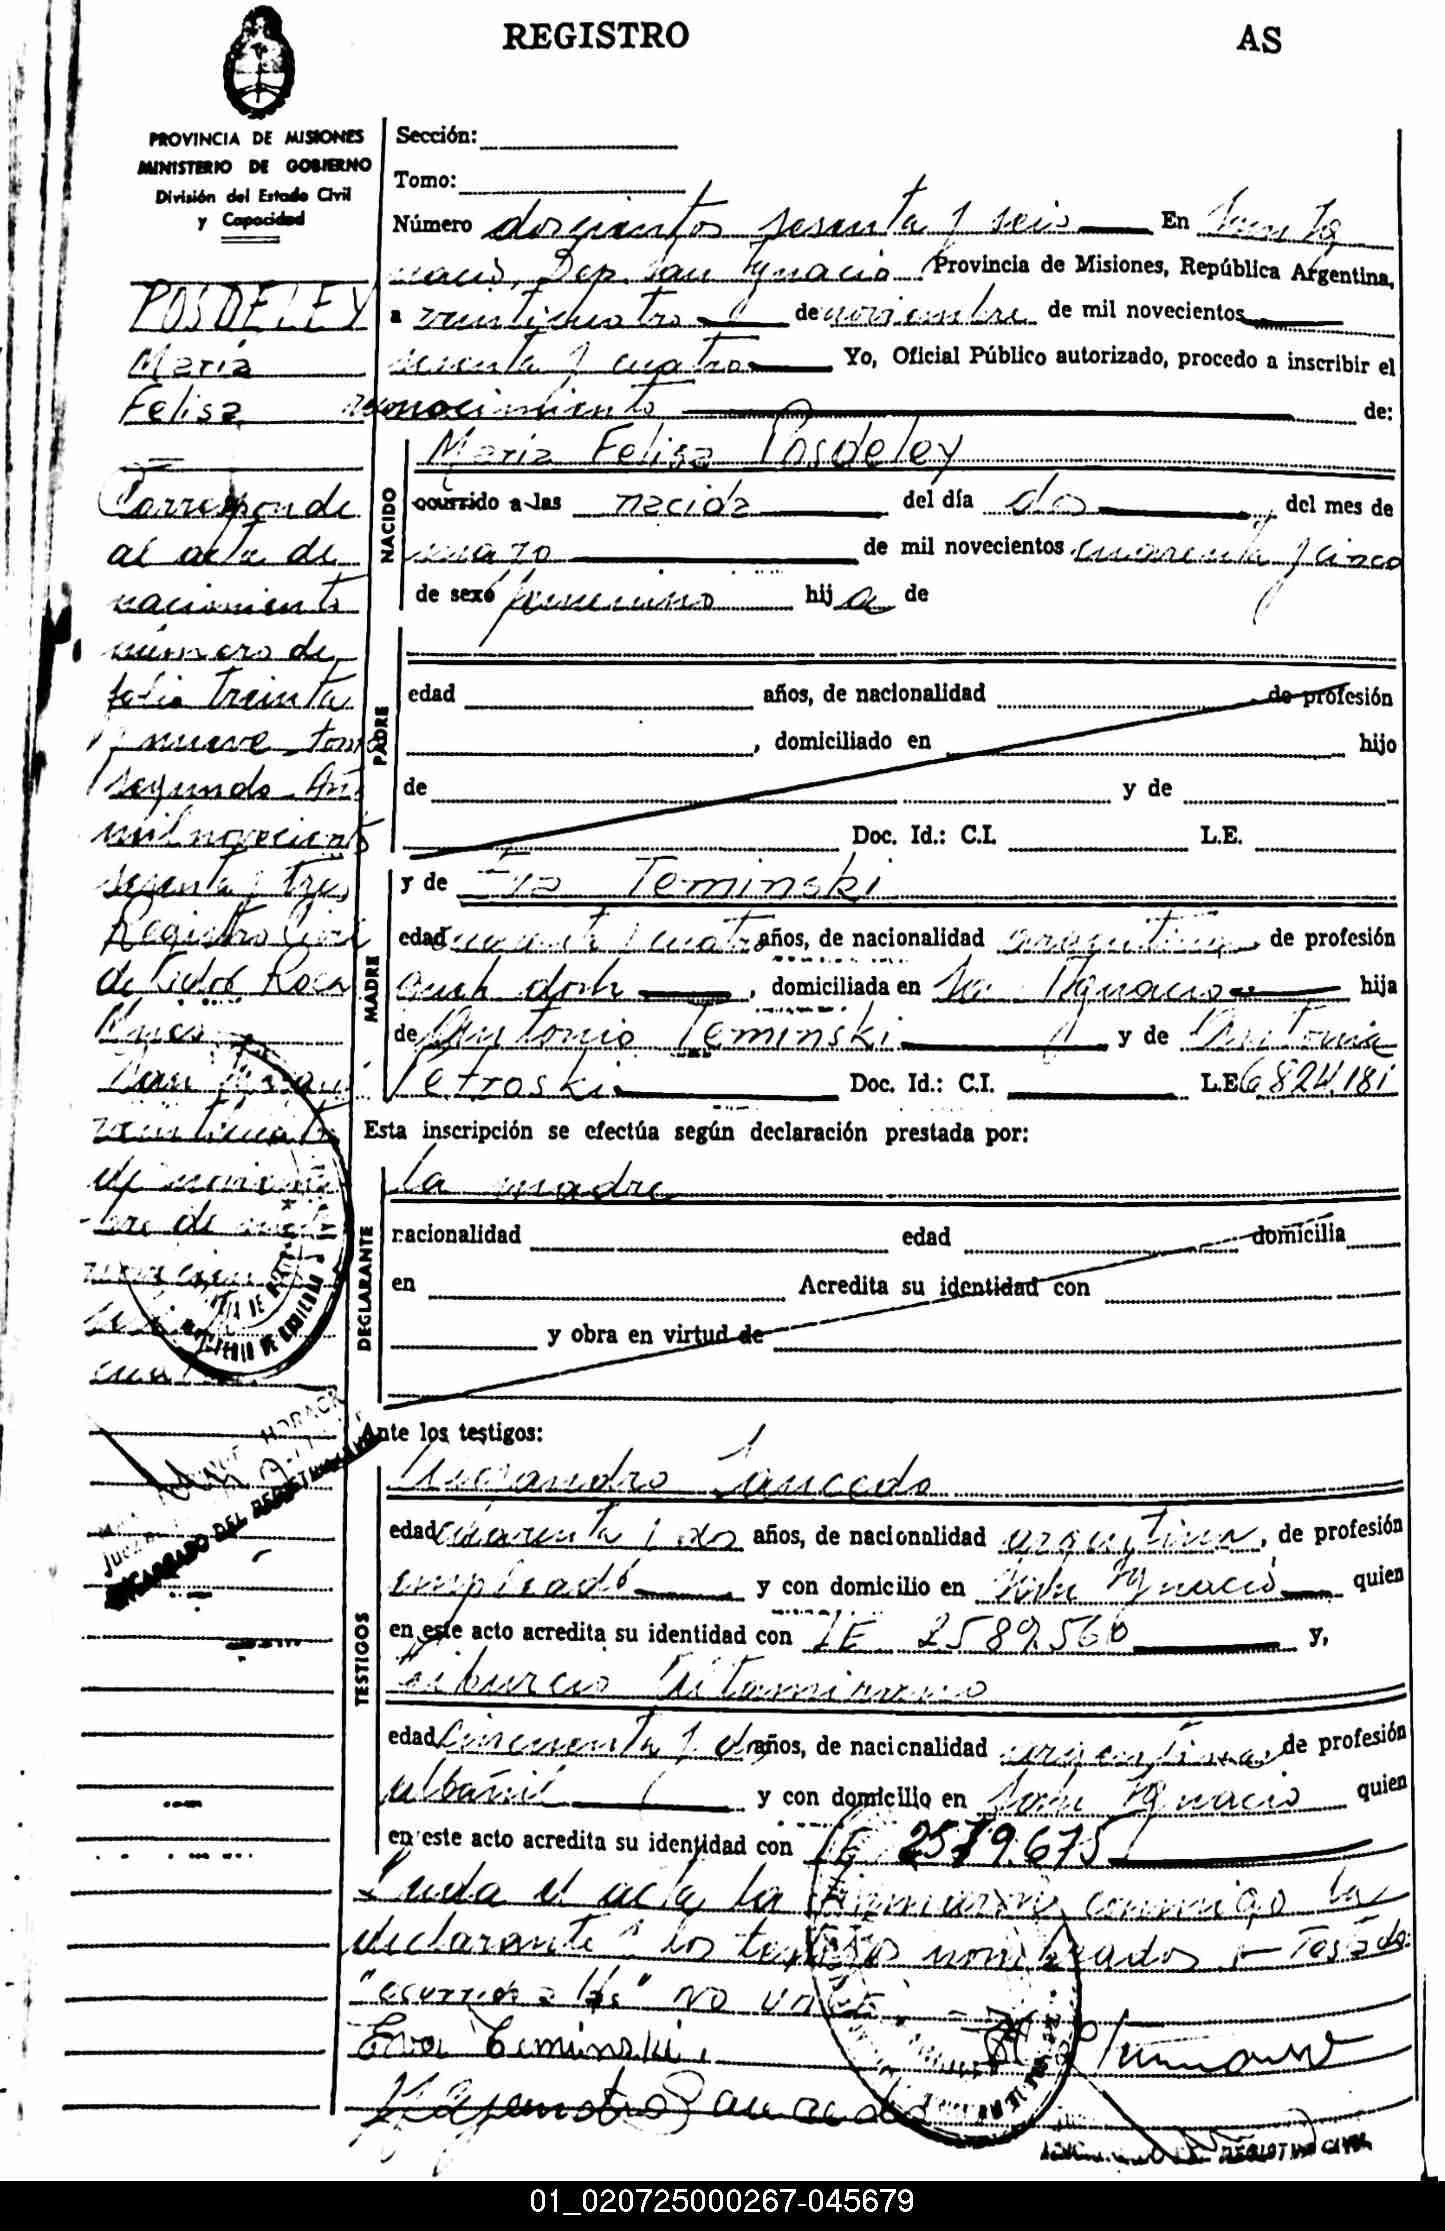 REGISTRO
AS
PROVINCIA DE MISIONES
MINISTERIO DE GOBIERNO
División del Estado Civil
y Capacidad
POSDELEY
María
Felisa
Corresponde
al acta de
nacimiento
número de
folio treinta
y nueve tomo
segundo Año
mil novecientos
sesenta y tres
Registro Civil
de Roca
veinticuatro
de noviem
bre de
ENCARGADO DEL REGISTRO
Sección:
Tomo:
Número doscientos sesenta y seis En San Ig
nacio, Dep. San Ignacio Provincia de Misiones, República Argentina,
a veinticuatro de noviembre de mil novecientos
sesenta y cuatro Yo, Oficial Público autorizado, procedo a inscribir el
reconocimiento de:
NACIDO
María Felisa Posdeley
ocurrido a las nacida del día dos del mes de
marzo de mil novecientos cuarenta y cinco
de sexo femenino hija de
PADRE
edad años, de nacionalidad de profesión
, domiciliado en hijo
de y de
Doc. Id.: C.I. L.E.
MADRE
y de Eva Teminski
edad cuarenta y cuatro años, de nacionalidad argentina, de profesión
, domiciliada en San Ignacio hija
de Antonio Teminski y de Antonia
Petroski Doc. Id.: C.I. L.E. 6824.181
Esta inscripción se efectúa según declaración prestada por:
DECLARANTE
la madre
nacionalidad edad domicilia
en Acredita su identidad con
y obra en virtud de
Ante los testigos:
TESTIGOS
Alejandro Saucedo
edad cuarenta y dos años, de nacionalidad argentina, de profesión
empleado y con domicilio en San Ignacio quien
en este acto acredita su identidad con LE 2589.560 y,
Tiburcio Altamirano
edad cincuenta y dos años, de nacionalidad argentina, de profesión
albañil y con domicilio en San Ignacio quien
en este acto acredita su identidad con LE 2579.675
Leida el acta la firmaron conmigo la
declarante y los testigos nombrados - Testado:
"ocurrido a las" NO VALE
Eva Teminski
Alejandro Saucedo
REGISTRO CIVIL
01_020725000267-045679